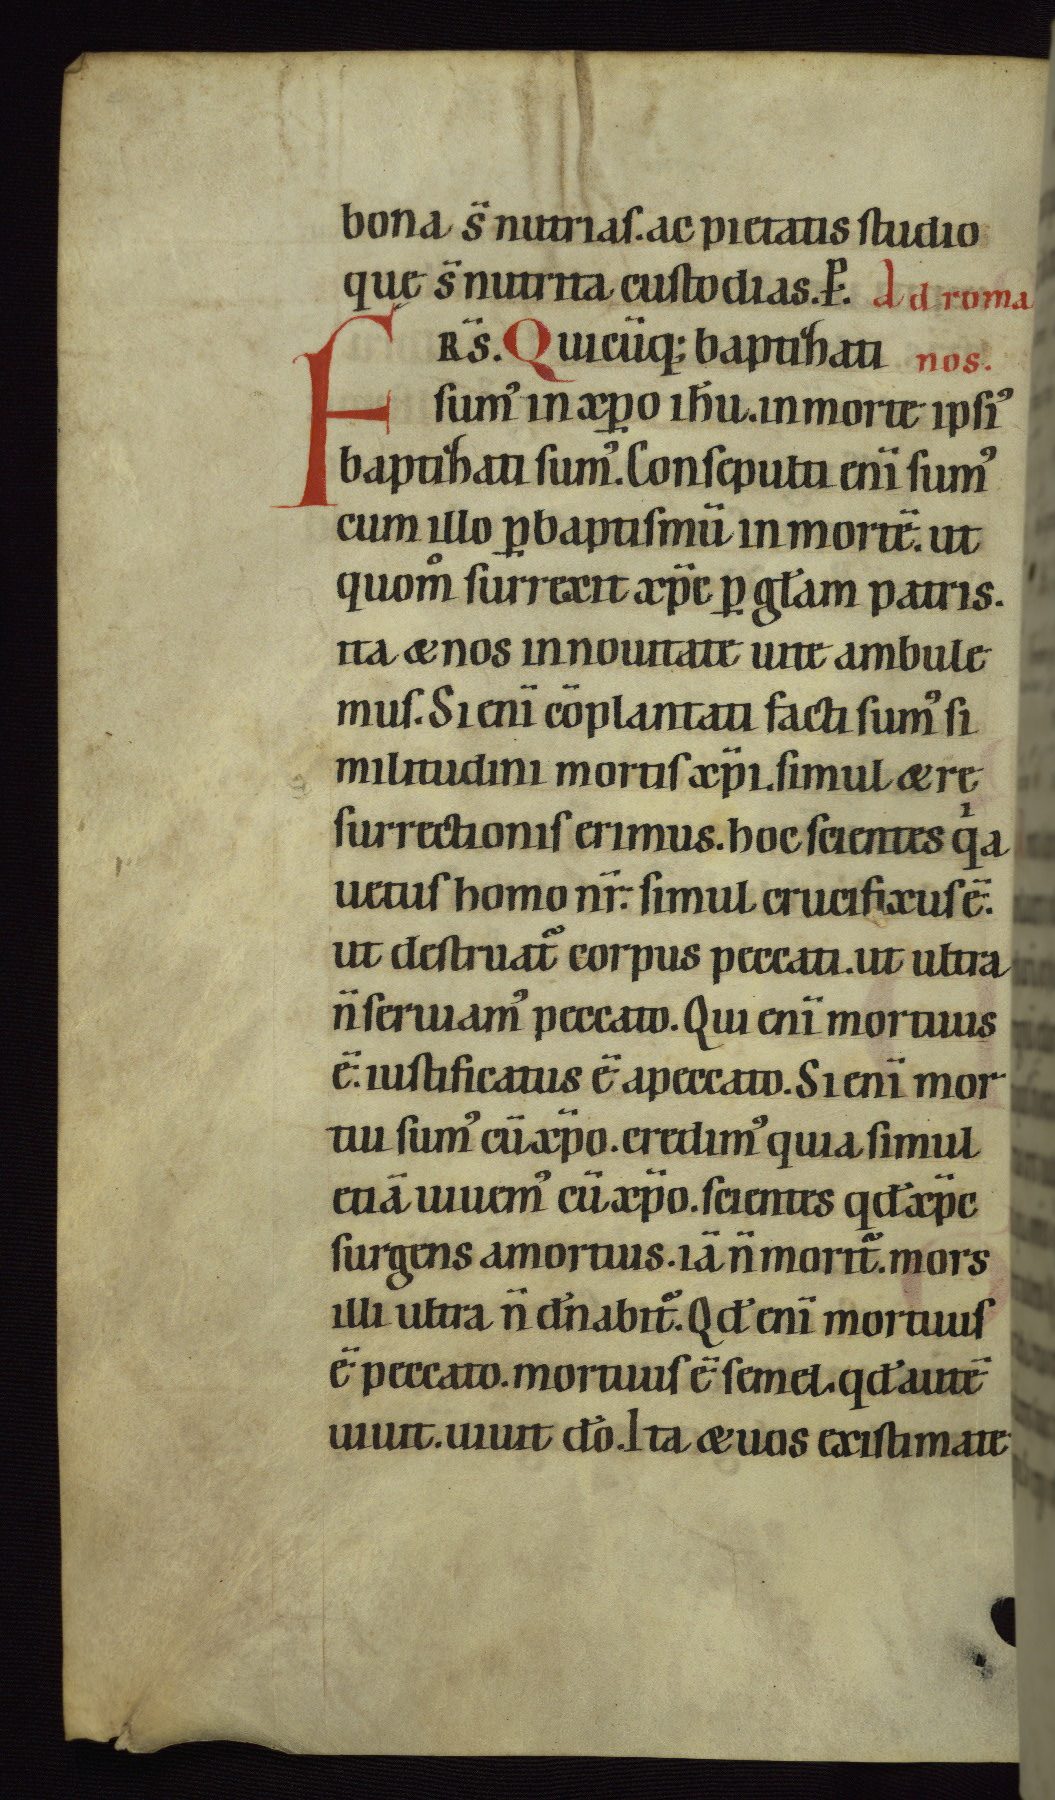 bona s̄ nutrias. ac pietatis studio
quę s̄ nutrita custodias. P. Ad roma
FRS̄. Quicūq; baptizati nos.
sum᾿ in xp̄o ih̄u. in morte ipsi᾿
baptizati sum᾿. Consepulti eni̅ sum᾿
cum illo ꝑ baptismū in mortē. ut
quom̊ surrexit xp̄c ꝑ gl̄am patris.
ita & nos in nouitate uite ambule
mus. Si eni̅ cōplantati facti sum᾿ si
militudini mortis xp̄i. simul & rę
surrectionis erimus. hoc scientes qͥa
uetus homo nr̄: simul crucifixus ē.
ut destruat᷑ corpus peccati. ut ultra
n̄ seruiam᾿ peccato. Qui eni̅ mortuus
ē. iustificatus ē a peccato. Si eni̅ mor
tui sum᾿ cū xp̄o. credim᾿ quia simul
etiā uiuem᾿ cū xp̄o. scientes qd̄ xp̄c
surgens a mortuis. iā n̄ morit᷑. mors
illi ultra n̄ d̄nabit᷑. Qd̄ eni̅ mortuus
ē peccato. mortuus ē semel. qd̄ autē
uiuit. uiuit d̄o. Ita & uos existimate